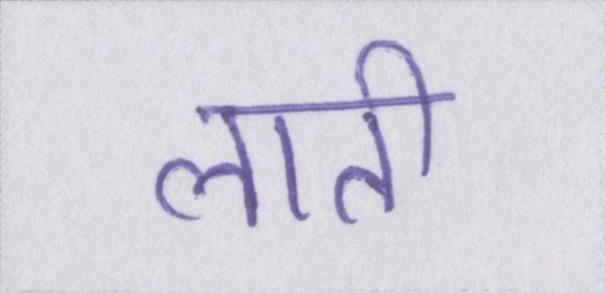 लाती